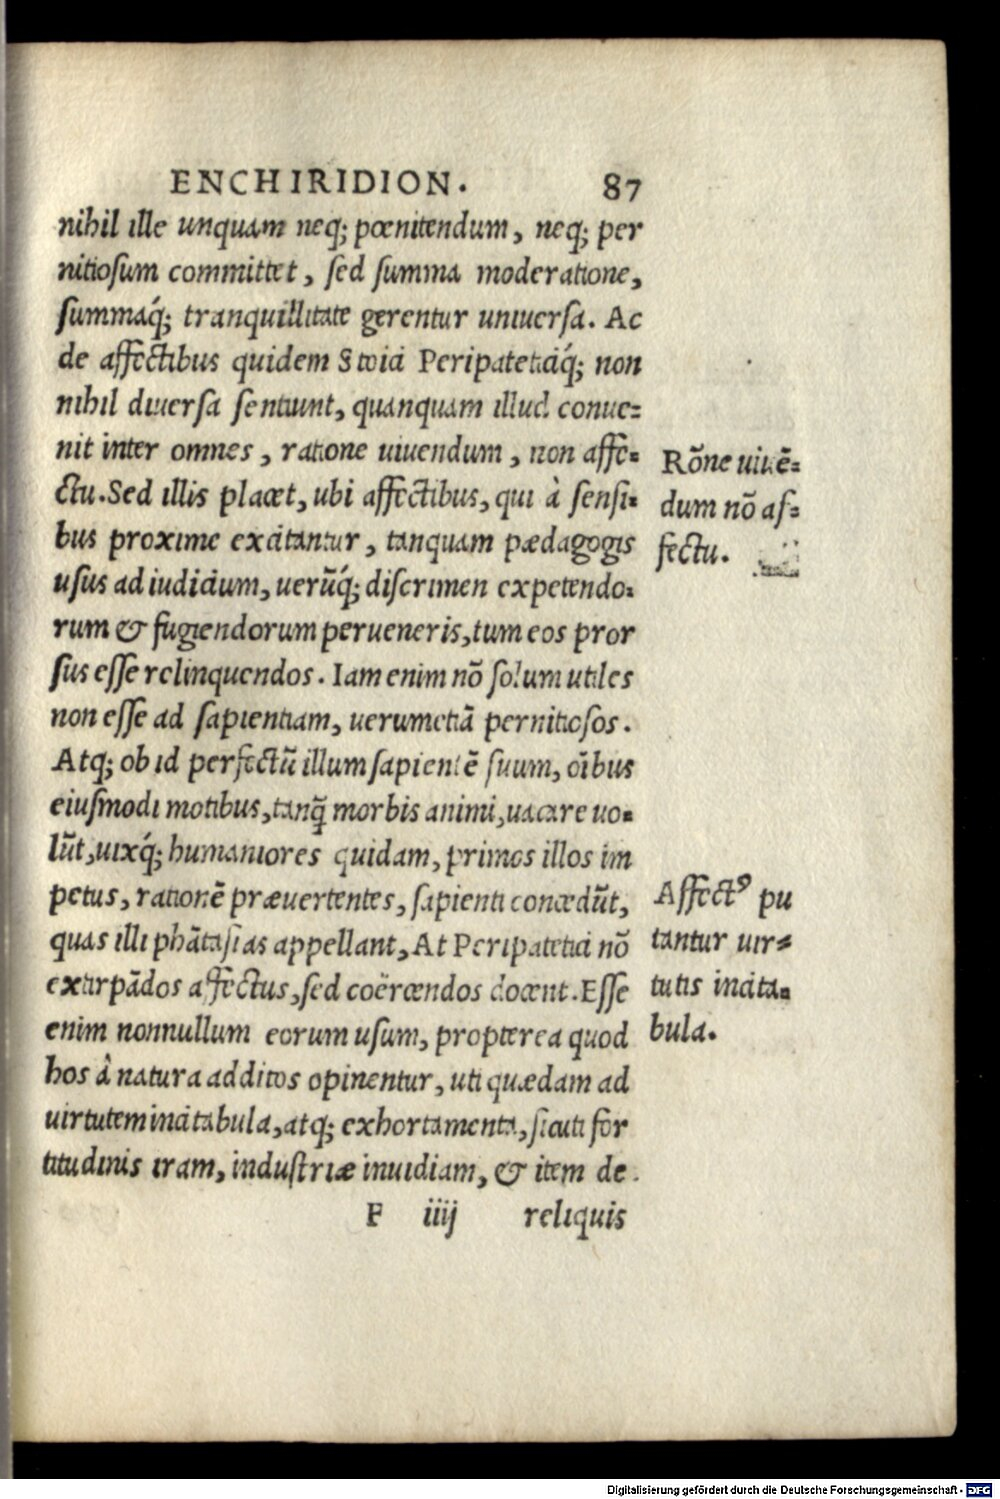 ENCHIRIDION. 87
nihil ille unquam neq; pœnitendum, neq; per
nitiosum committet, sed summa moderatione,
summaq́; tranquillitate gerentur uniuersa. Ac
de affectibus quidem Stoici Peripateticiq́; non
nihil diuersa sentiunt, quanquam illud conue-
nit inter omnes, ratione uiuendum, non affe-
ctu. Sed illis placet, ubi affectibus, qui à sensi-
bus proxime excitantur, tanquam pædagogis
usus ad iudicium, uerũq́; discrimen expetendo-
rum & fugiendorum perueneris, tum eos pror
sus esse relinquendos. Iam enim nõ solum utiles
non esse ad sapientiam, uerumetiã pernitiosos.
Atq; ob id perfectũ illum sapientẽ suum, oĩbus
eiusmodi motibus, tanq̃ morbis animi, uacare uo-
lũt, uixq́; humaniores quidam, primos illos im
petus, rationẽ præuertentes, sapienti concedũt,
quas illi phãtasias appellant, At Peripatetici nõ
extirpãdos affectus, sed coërcendos docent. Esse
enim nonnullum eorum usum, propterea quod
hos à natura additos opinentur, uti quædam ad
uirtutem incitabula, atq; exhortamenta, sicuti for
titudinis iram, industriæ inuidiam, & item de
F iiij reliquis
Rõne uiuẽ-
dum nõ af-
fectu.
Affectꝰ pu
tantur uir-
tutis incita-
bula.
Digitalisierung gefördert durch die Deutsche Forschungsgemeinschaft - DFG